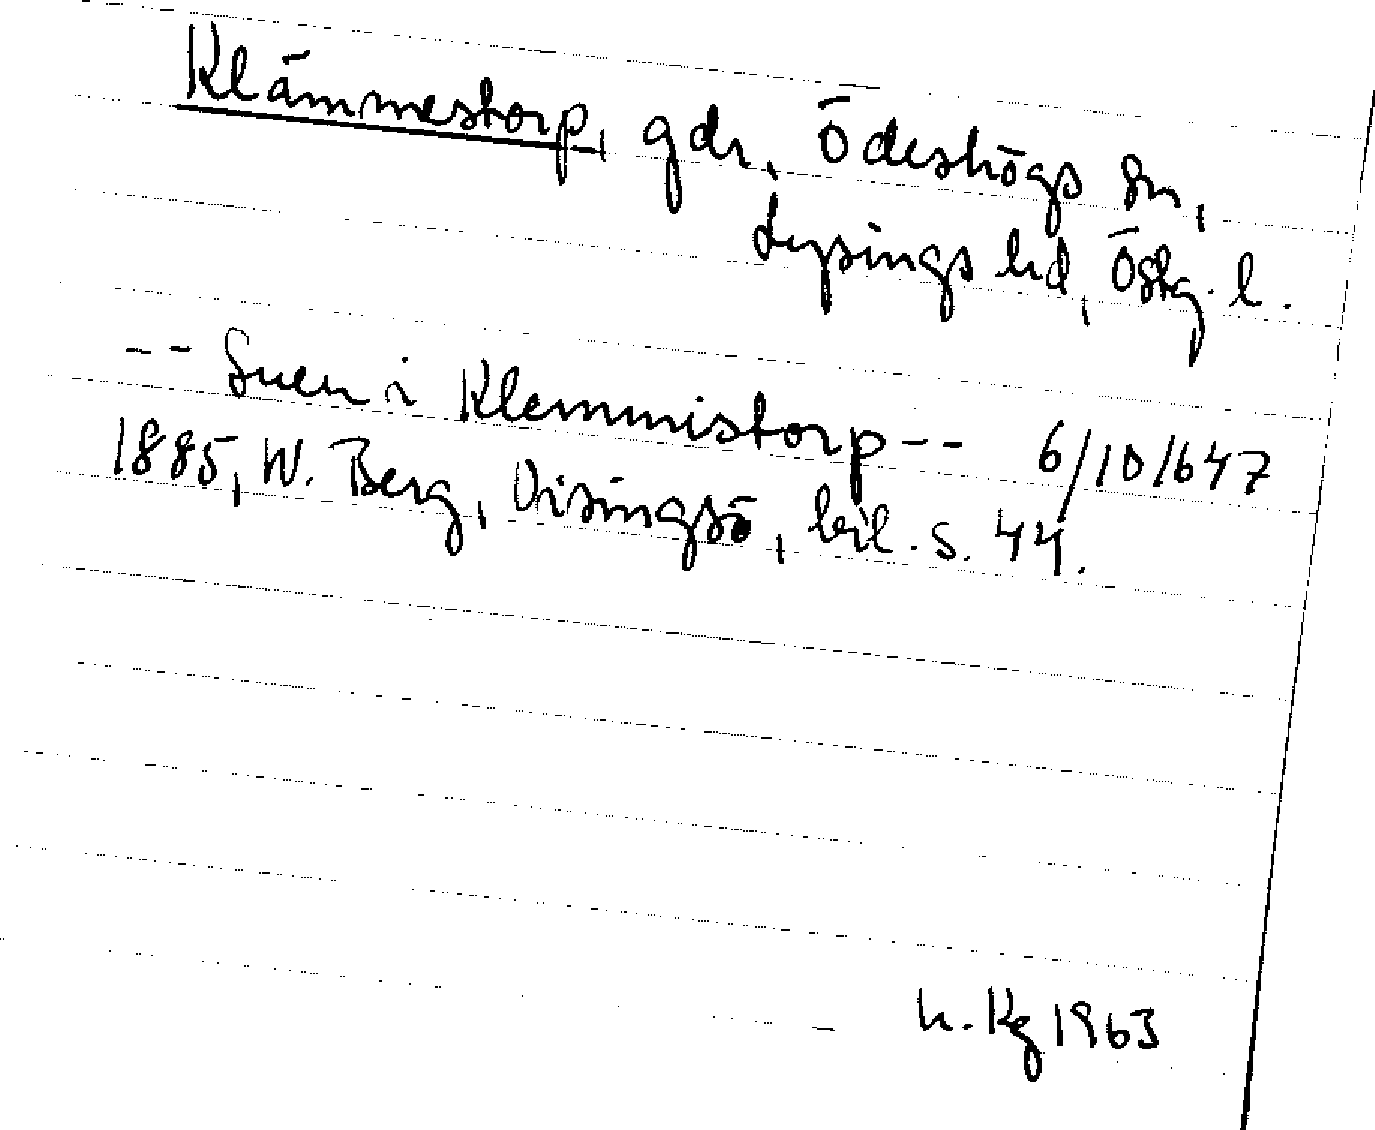 Klämmestorp, gdr, Ödeshögs sn,
Lysings hd, Östg. l.
-- Suen i Klemmistorp -- 6/10/647
1885, W. Berg, Visingsö, bil. s. 44.
h. Kg 1963